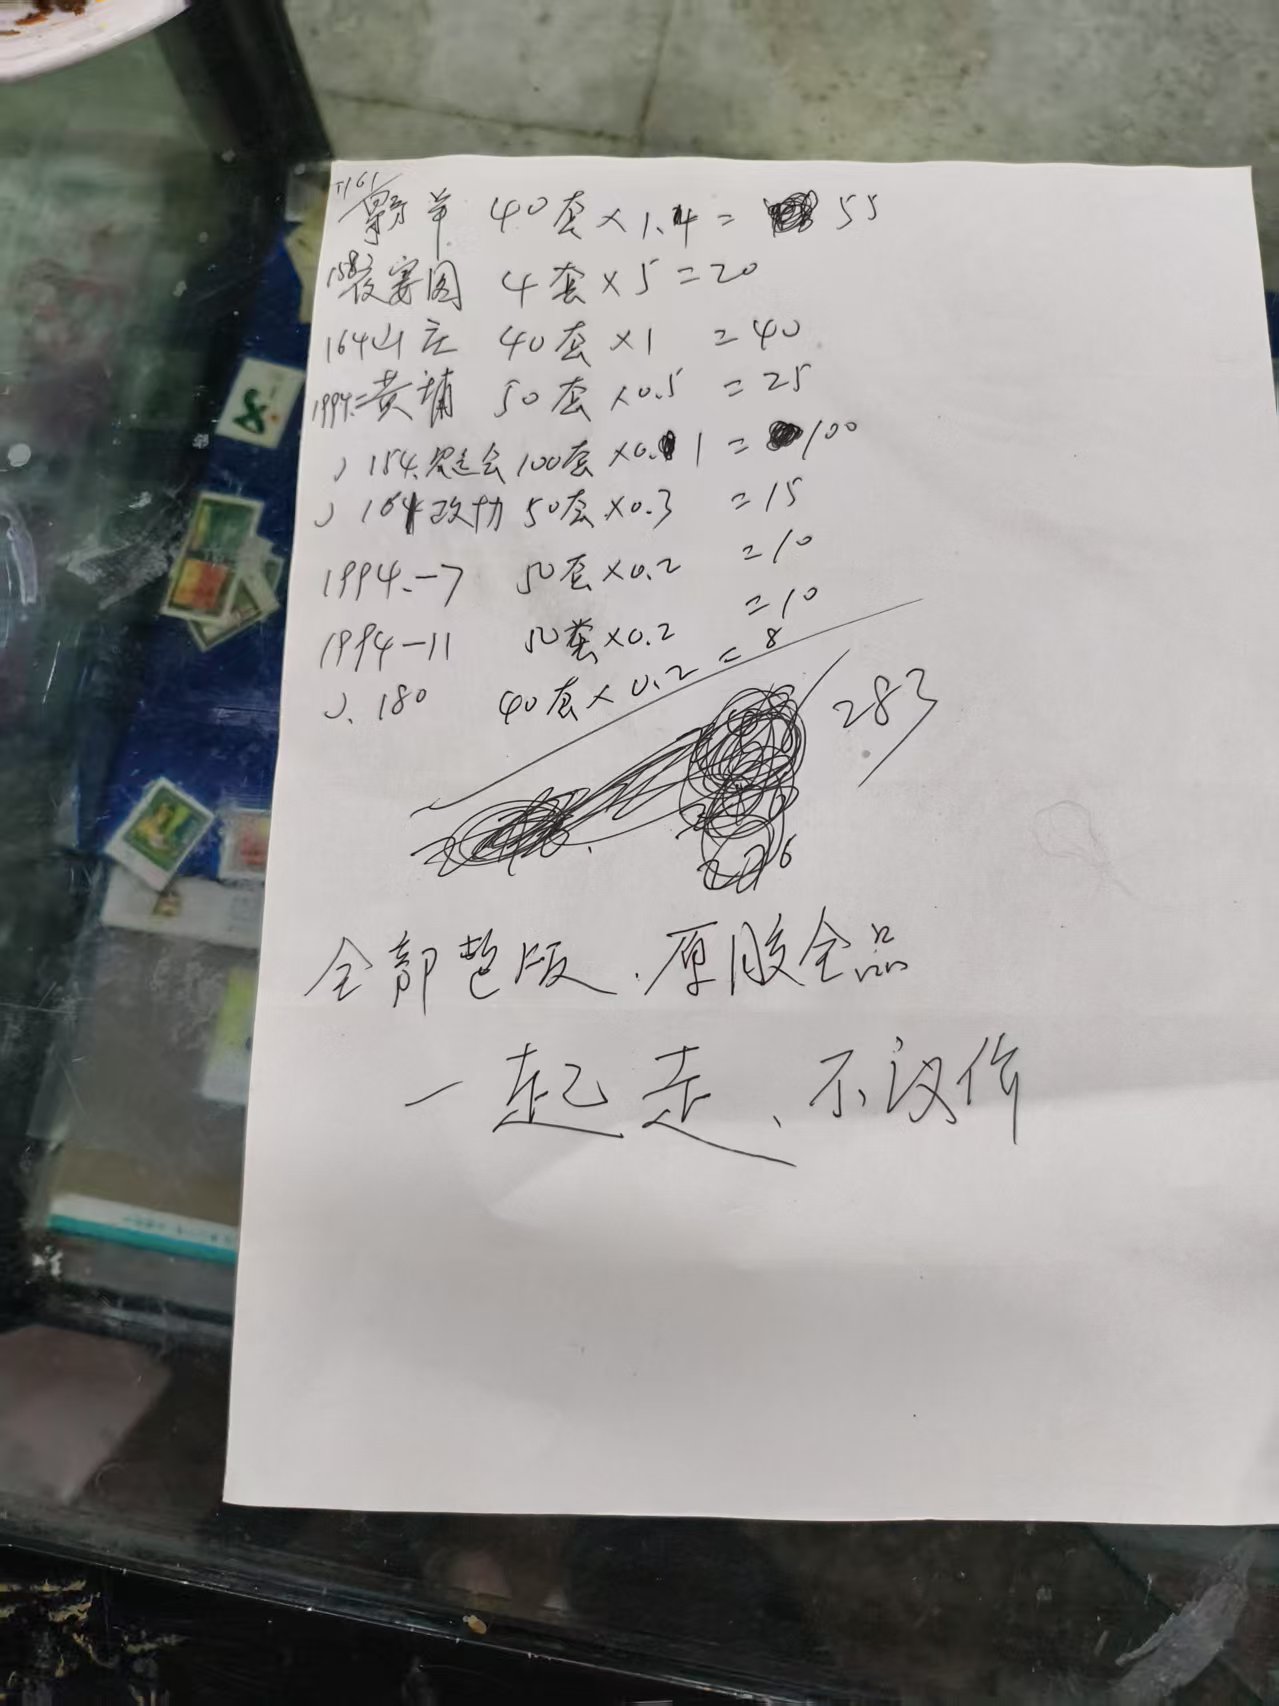 T161
野羊 40套×1.4= 55
158夜宴图 4套×5=20
164山庄 40套×1 =40
1994.=黄埔 50套×0.5 =25
J 154.冬运会100套×0.1 = 100
J 164政协 50套×0.3 =15
1994.-7 50套×0.2 =10
1994-11 50套×0.2 =10
J.180 40套×0.2=8
283
全部整版.原胶全品
一起走、不议价